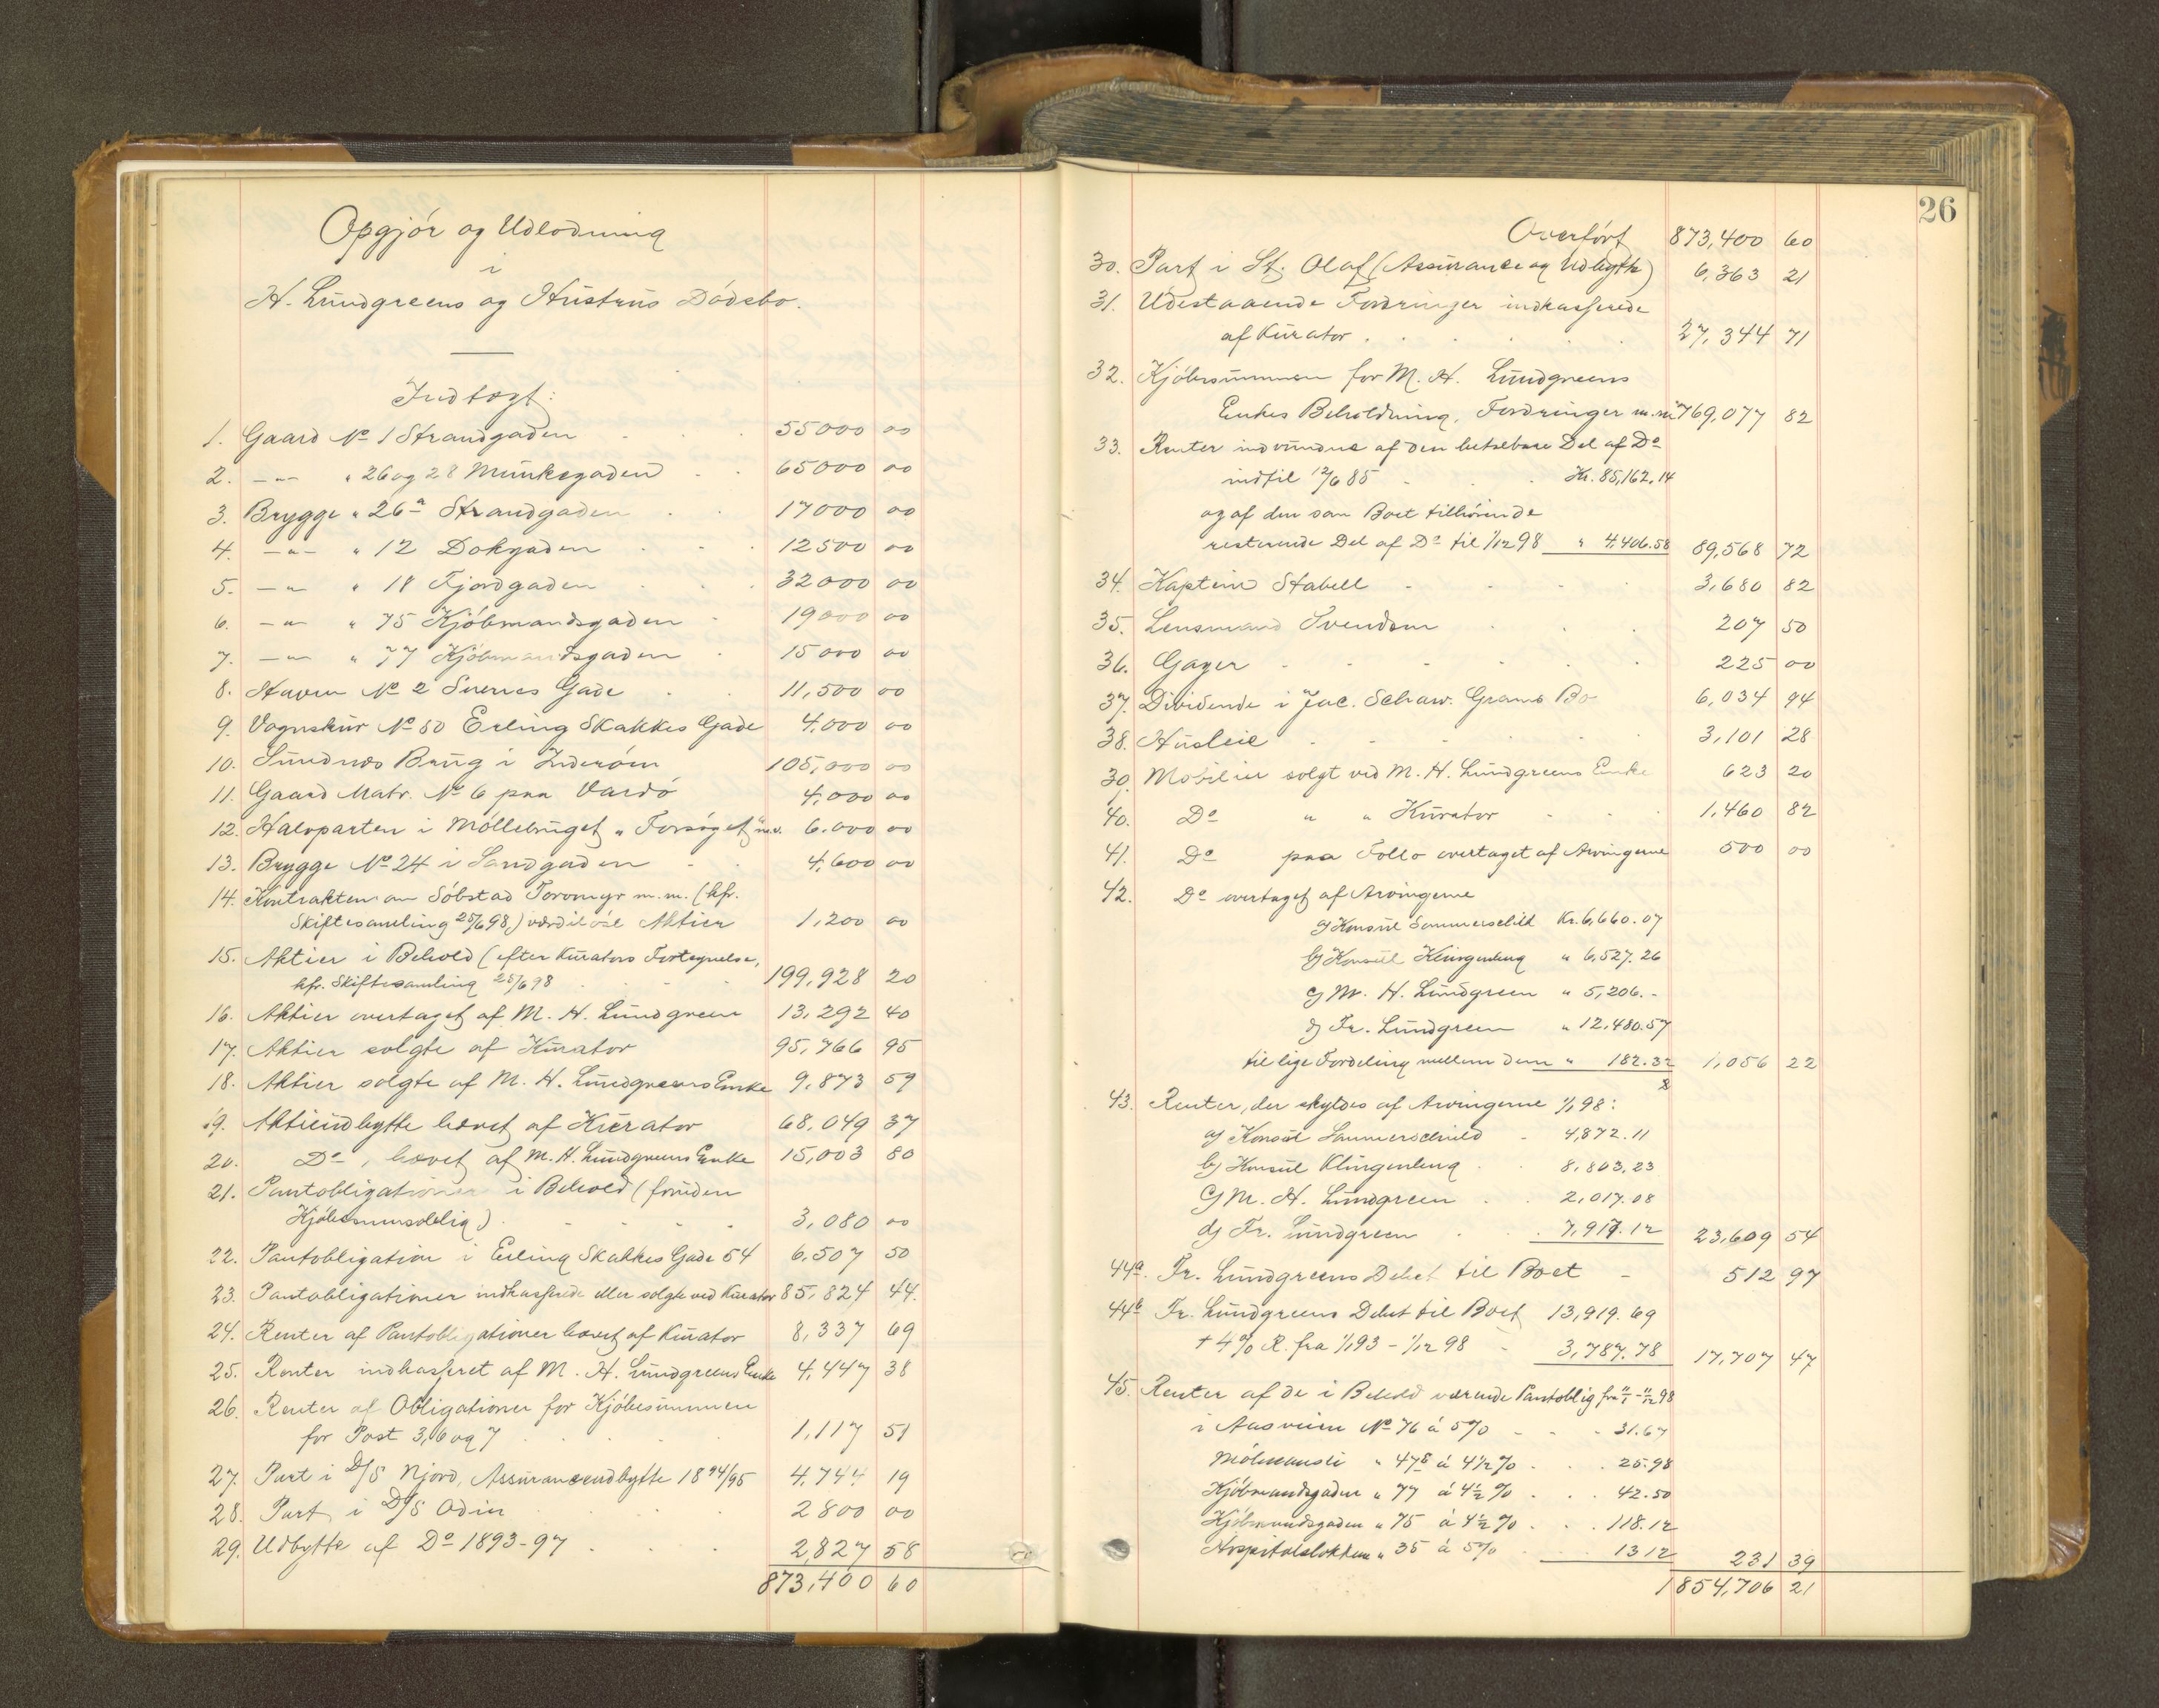 Opgjör og Udlodning
i
H. Lundgreens og Hustrus Dödsbo.
Indtægt:
1. Gaard No 1 Strandgaden 55000 00
2. —"— " 26 og 28 Munkegaden 65000 00
3. Brygge " 26a Strandgaden 17000 00
4. —"— " 12 Dokgaden 12500 00
5. —"— " 18 Fjordgaden 32000 00
6. —"— " 75 Kjöbmandsgaden 19000 00
7. —"— " 77 Kjöbmandsgaden 15000 00
8. Haven No 2 Sverres Gade 11,500 00
9. Vognskur No 50 Erling Skakkes Gade 4,000 00
10. Sundnæs Brug i Inderöen 105,000 00
11. Gaard Matr. No 6 paa Vardö 4,000 00
12. Halvparten i Möllebruget "Forsöget" m.v. 6.000 00
13. Brygge No 24 i Sandgaden 4,600 00
14. Kontrakten om Söbstad Torvmyr m.m. (kfr.
Skiftesamling 25/6 98,) værdilöse Aktier 1,200 00
15. Aktier i Behold (efter Kurators Fortegnelse,
kfr. Skiftesamling 25/6 98 199,928 20
16. Aktier overtaget af M. H. Lundgreen 13,292 40
17. Aktier solgte af Kurator 95,766 95
18. Aktier solgte af M. H. Lundgreens Enke 9,873 59
19. Aktieudbytte hævet af Kurator 68,049 37
20. Do, hævet af M. H. Lundgreens Enke 15,003 80
21. Pantobligationer i Behold (foruden
Kjöbesumsoblig) 3,080 00
22. Pantobligation i Erling Skakkes Gade 54 6,507 50
23. Pantobligationer indkasserede eller solgte ved Kurator 85,824 44.
24. Renter af Pantobligationer hævet af Kurator 8,337 69
25. Renter indkasseret af M. H. Lundgreens Enke 4,447 38
26. Renter af Obligationer for Kjöbesummen
for Post 3, 6 og 7 1,117 51
27. Part i D/S Njord, Assuranceudbytte 1894/95 4,744 19
28. Part i D/S Odin 2800 00
29. Udbytte af Do 1893-97 2,827 58
873,400 60
26
Overfört 873,400 60
30. Part i St. Olaf (Assurance og Udbytte) 6,363 21
31. Udestaaende Fordringer indkasserede
af Kurator 27,344 71
32. Kjöbesummen for M. H. Lundgreens
Enkes Beholdning, Fordringer m.m. 769,077 82
33. Renter indvundne af den betalbare Del af Do
indtil 12/6 85 Kr. 85,162.14
og af den som Boet tilhörende
resterende Del af Do til 1/12 98 " 4,406.58 89,568 72
34. Kaptein Stabell 3,680 82
35. Lensmand Svendsen 207 50
36. Gager 225 00
37. Dividende i Jac. Schaw. Grams Bo 6,034 94
38. Husleie 3,101 28
39. Mobilier solgt ved M. H. Lundgreens Enke 623 20
40. Do " " Kurator 1,460 82
41. Do paa Follo overtaget af Arvingerne 500 00
42. Do overtaget af Arvingerne
a) Konsul Sommerschild Kr. 6,660.07
b) Konsul Klingenberg " 6,527.26
c) M. H. Lundgreen " 5,206.-
d) Fr. Lundgreen " 12,480.57
til lige Fordeling mellem dem " 182.32 1,056 22
43. Renter, der skyldes af Arvingerne 1/1 98:
a) Konsul Sommerschild 4,872.11
b) Konsul Klingenberg 8,803,23
c) M. H. Lundgreen 2,017.08
d) Fr. Lundgreen 7,917.12 23,609 54
44a. Fr. Lundgreens Debet til Boet 512 97
44b Fr. Lundgreens Debet til Boet 13,919.69
+ 4% R. fra 1/1 93 - 1/12 98 3,787.78 17,707 47
45. Renter af de i Behold værende Pantoblig fra 11/6 - 11/12 98
i Aasveien No 76 à 5% 31.67
" 47 à 4½% 25.98
Kjöbmandsgaden " 77 à 4½% 42.50
Kjöbmandsgaden " 75 à 4½% 118.12
Hospitalslökken " 35 à 5% 13 12 231 39
1854,706 21